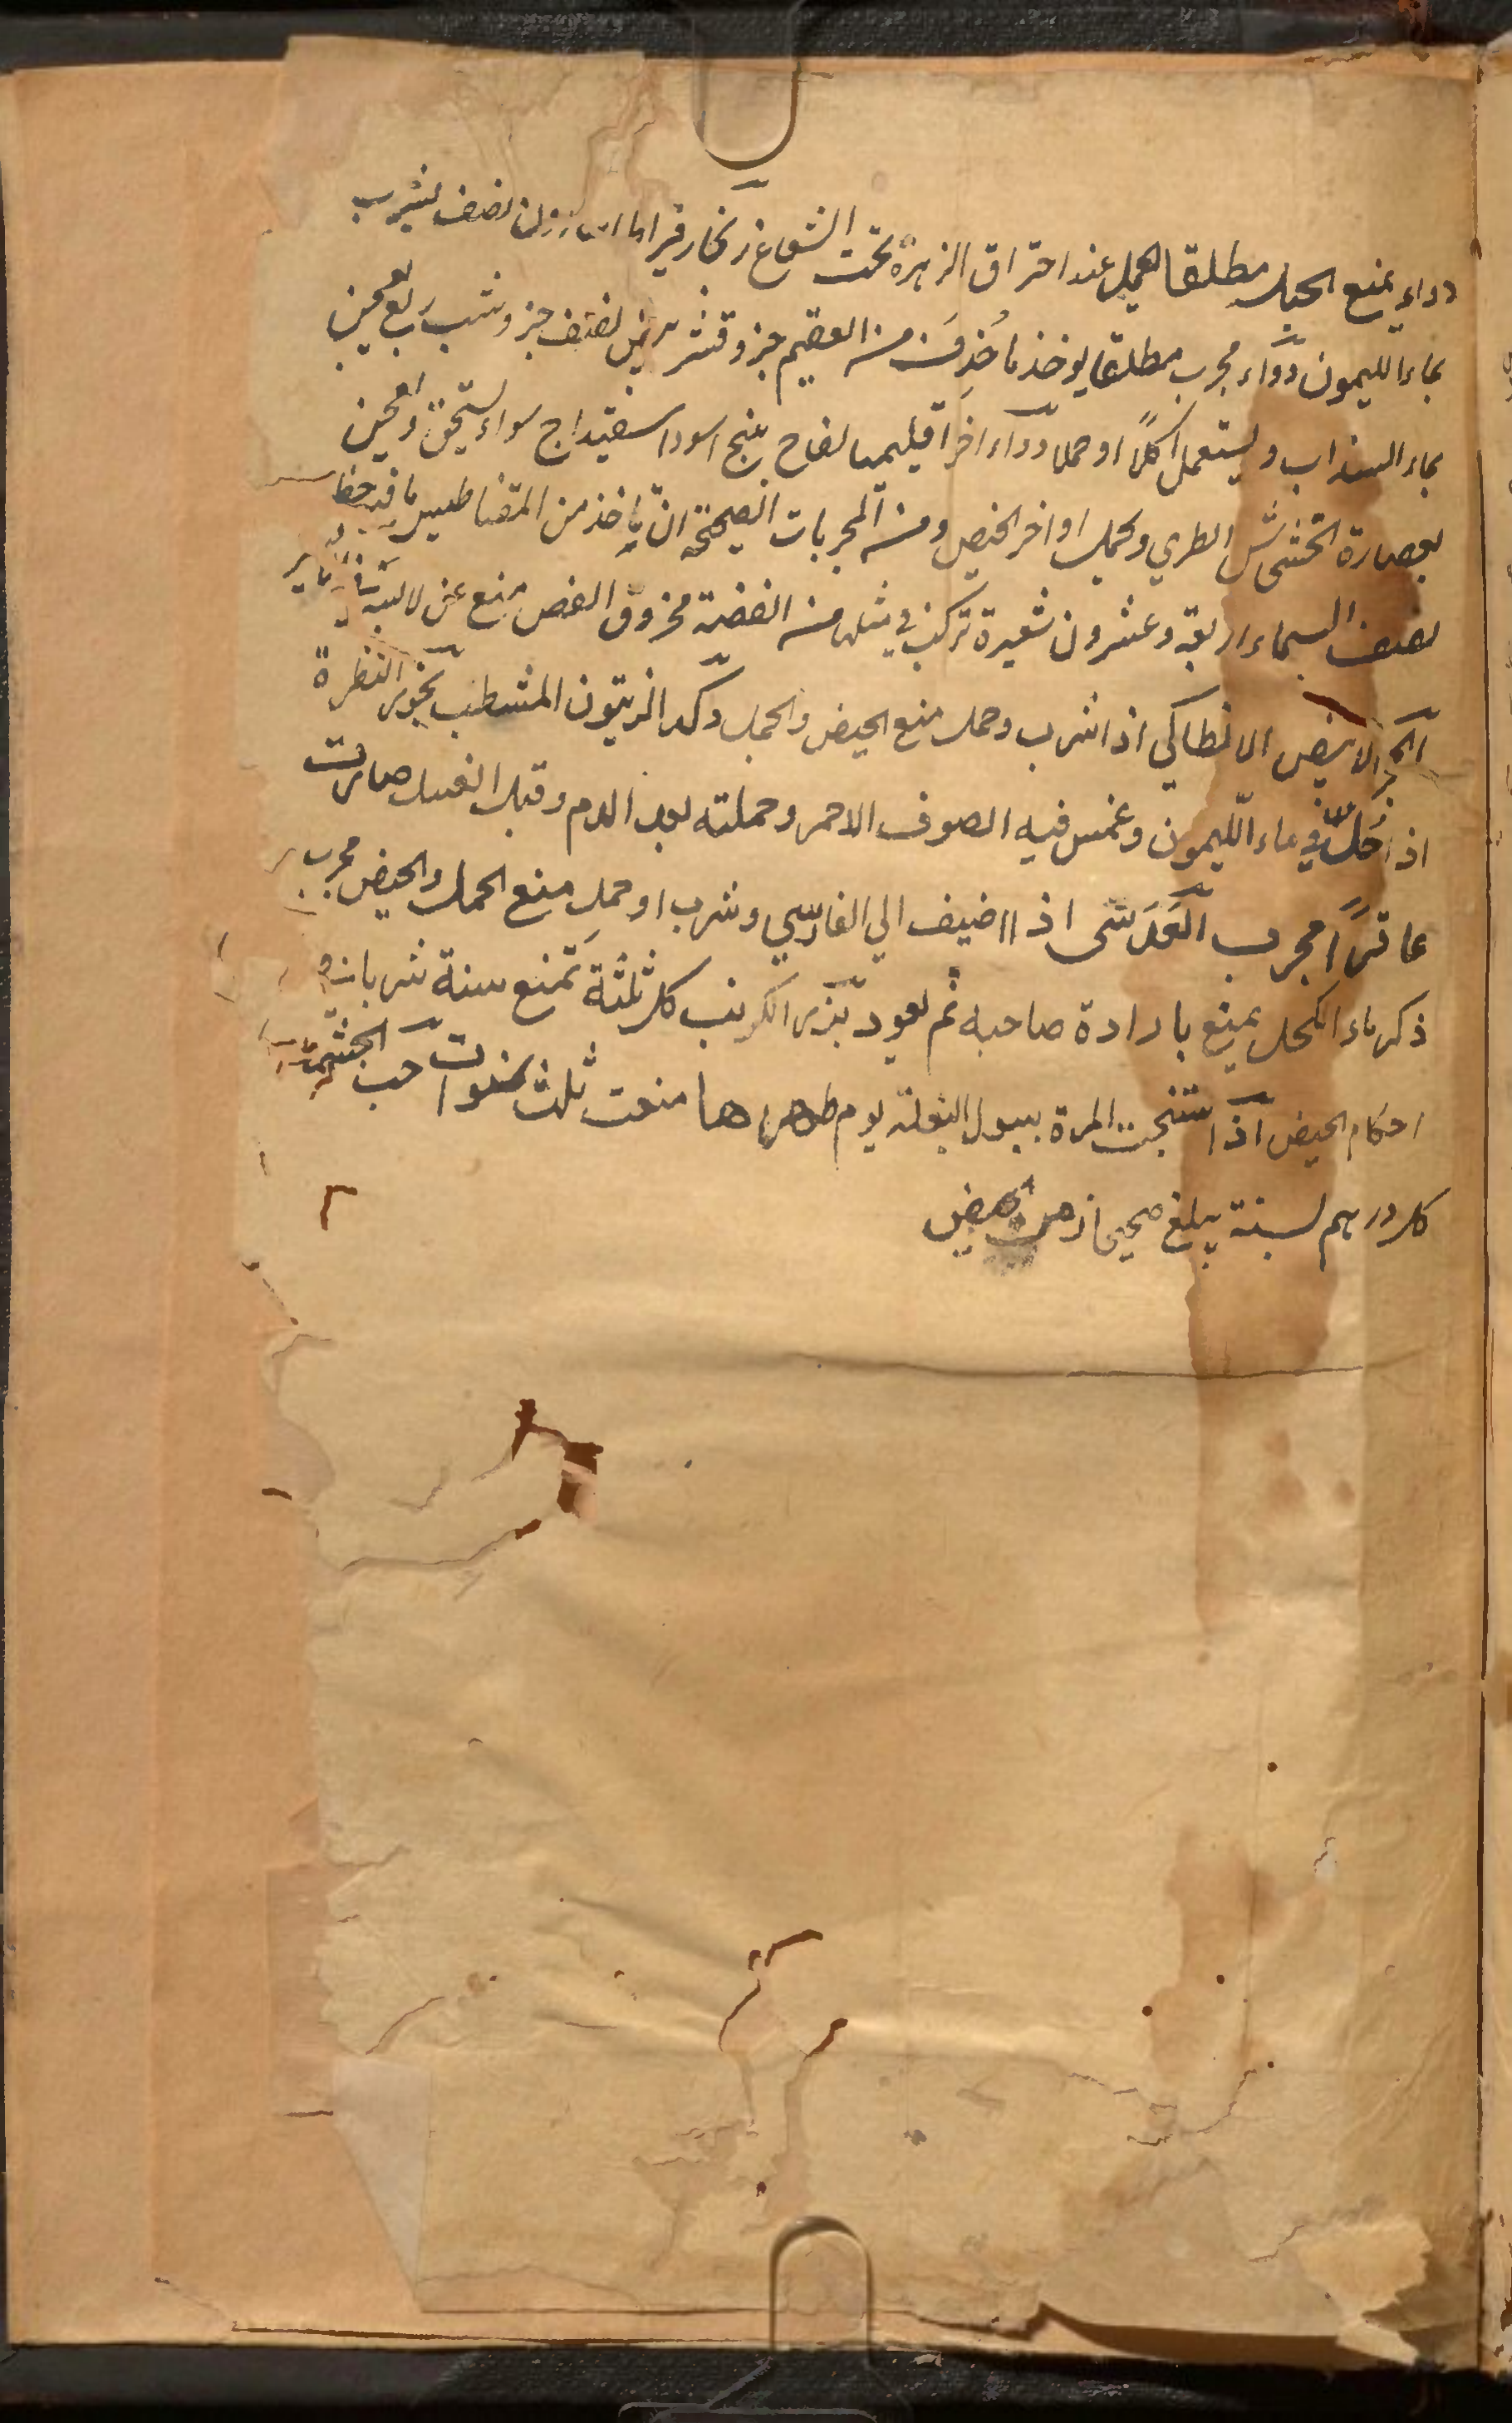 دواء يمنع الحبل مطلقا يعمل عند احتراق الزهرة تحت الشعاع زنجار نصف يشرب
بماء الليمون دواء مجرب مطلقا يوخذ ما من العقيم جزو قشر نصف جزو شب ربع يعجن
بماء السنداب ويستعمل اكلا او حملا دواء اخر اقليميا لفاح بنج اسود اسفيداج سواء يسحق ويعجن
بعصارة الخشخاش الطري ويحمل اواخر الحيض ومن المجربات الصحيحة ان ياخذ من المقناطيس ما فيه خط
نصف السماء اربعة وعشرون شعيرة تركب في مثلها من الفضة مخروق الفص منع عن لابسه
الابيض الانطاكي اذا شرب وحمل منع الحيض والحمل وكذا الزيتون المشطب بخور النظرة
اذا حل في ماء الليمون وغمس فيه الصوف الاحمر وحملته بعد الدم وقبل الغسل صارت
عاقرا مجرب العدسى اذا اضيف الي الفارسي وشرب او حمل منع الحمل والحيض مجرب
ذكر ماء الكحل يمنع بارادة صاحبه ثم يعود بزر الكرنب كل ثلثة تمنع سنة شربا
احكام الحيض اذا استنجت المرة ببول البغلة يوم طهرها منعت ثلث سنوات حب
كل درهم لسنة يبلغ صحيحا